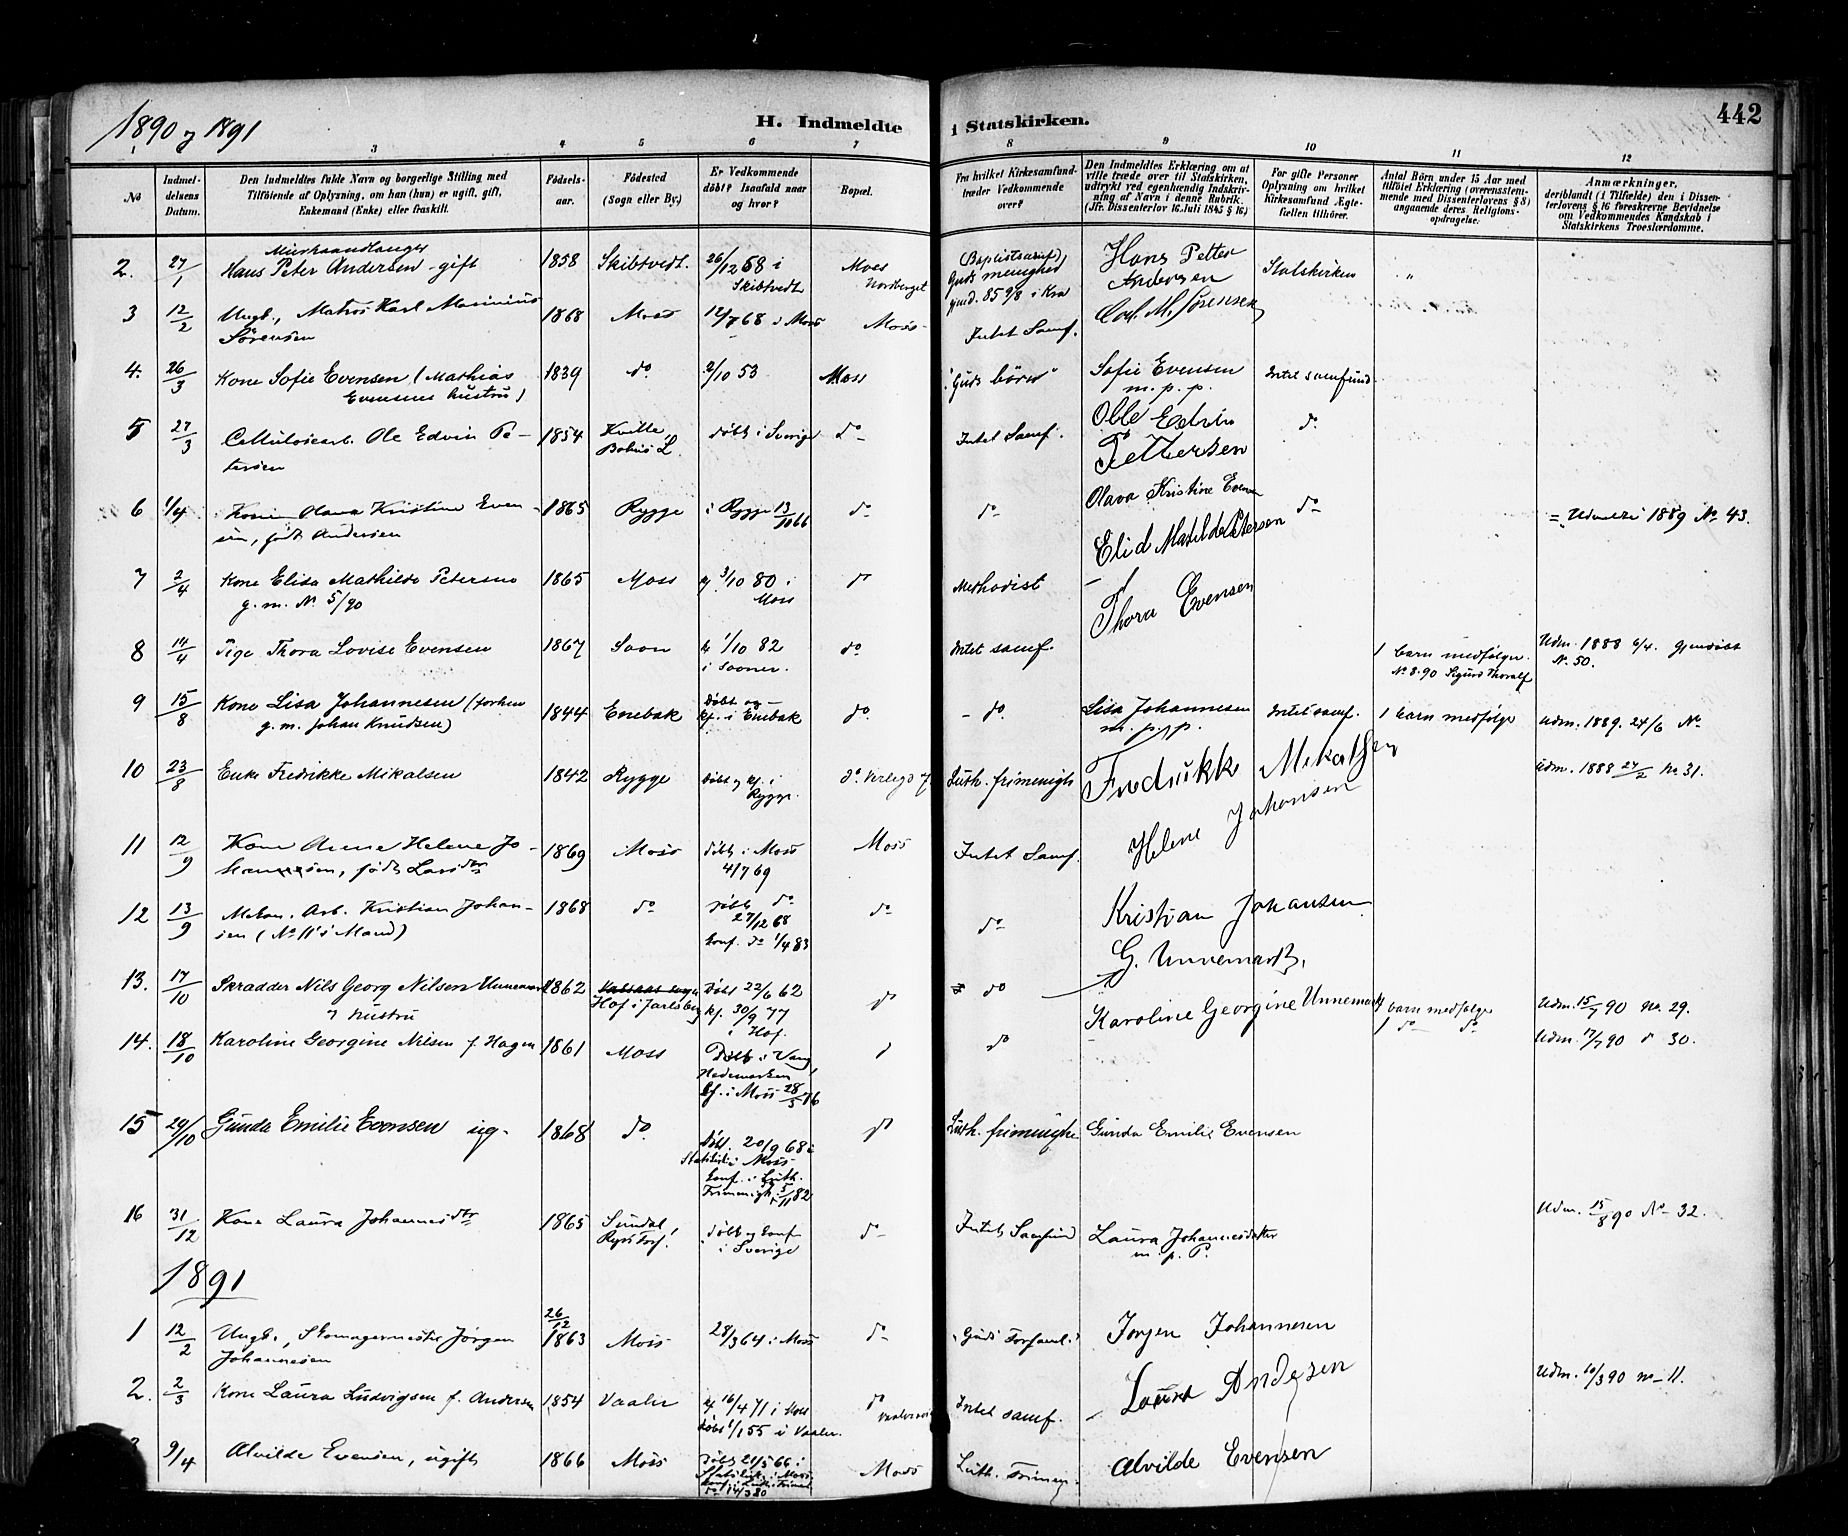 1890 og 1891
H. Indmeldte i Statskirken.
442
3 4 5 6 7 8 9 10 11 12
No
Indmeldelsens Datum.
Den Indmeldtes fulde Navn og borgerlige Stilling med
Tilföiende af Oplysning, om han (hun) er ugift, gift,
Enkemand (Enke) eller fraskilt.
Födselsaar.
Födested
(Sogn eller By.)
Er Vedkommende
döbt? Isaafald naar
og hvor?
Bopæl.
Fra hvilket Kirkesamfund
træder Vedkommende
over?
Den Indmeldtes Erklæring om at
ville træde over til Statskirken,
udtrykt ved egenhændig Indskrivning
af Navn i denne Rubrik.
(Jfr. Dissenterlov 16 Juli 1845 § 16.)
For gifte Personer
Oplysning om hvilket
Kirkesamfund Ægtefællen
tilhörer.
Antal Börn under 15 Aar med
tilföiet Erklæring (overensstemmende
med Dissenterlovens § 8)
angaaende deres Religionsopdragelse.
Anmærkninger,
deriblandt (i Tilfælde) den i Dissenterlovens
§ 16 foreskrevne Bevidnelse
om Vedkommendes Kundskab i
Statskirkens Troeslærdomme.
2. 27/1 Murhaandlanger Hans Peter Andersen - gift 1858 Skibtvedt. 26/12 58 i Skibtvedt Moss Nordberget (Baptistsamf) Guds menighed 85 9/8 i Kra Hans Petter Andersen Statskirken "
3 12/2 Ungk., Matros Karl Marinius Sörensen 1868 Moss 12/7 68 i Moss Moss Intet Samf. Carl M. Sørensen
4. 26/3 Kone Sofie Evensen (Mathias Evensens hustru) 1839 do 2/10 53 Moss "Guds börn" Sofie Evensen m. p. p. Intet samfund
5 27/3 Cellulosearb. Ole Edvin Petersen 1854 Kville Bohus L. döbt i Sverige do Intet Samf. Olle Edvin Pettersen do
6 1/4 Kone Olava Kristine Evensen, födt Andersen 1865 Rygge i Rygge 13/10 66 do do Olava Kristine Evensen do = Udmeldt 1889 No 43.
7 2/4 Kone Elisa Mathilde Petersen g. m. No 5/90 1865 Moss 3/10 80 i Moss do Methodist Elid Matilde Petersen
8 14/4 Pige Thora Lovise Evensen 1867 Soon k 1/10 82 i Sooner. do Intet samf. Thora Evensen 1 barn medfølger. No 8. 90 Sigurd Thoralf Udm. 1888 6/4. gjendöbt No 50.
9 15/8 Kone Lisa Johannesen (forhen g. m. Johan Knudsen) 1844 Enebak Döbt og kf. i Enebak do. - do. Lisa Johannesen m. p. p. Intet samf. 1 barn medfølge Udm. 1889. 24/6 No
10 23/8 Enke Fredrikke Mikalsen 1842 Rygge Döbt og kf. i Rygge. do. Verlegd 7 Luth. frimenigh Fredrikke Mikalsen Udm. 1888 24/2 No 31.
11 12/9 Kone Anna Helene Johannesen, födt Larsdtr 1869 Moss döbt i Moss 4/7 69 Moss Intet Samf. Helene Johansen
12 13/9 Mekan. Arb. Kristian Johansen (No 11's Mand) 1868 do Döbt do 27/12 68 Conf. do 1/4 83 do do Kristian Johansen
13. 17/10 Skrædder Nils Georg Nilsen Unnemark og hustru 1862 Hof i Jarlsberg Döbt 22/6 62 kf. 30/9 77 i Hof. do do G. Unnemark, 1 barn medfølge Udm. 15/7 90 No. 29.
14. 18/10 Karoline Georgine Nilsen f. Hagen 1861 Moss Döbt i Vang Hedemarken kf. i Moss 28/5 76 do do Karoline Georgine Unnemark 1 do do Udm. 17/7 90 do 30.
15 29/10 Gunda Emilie Evensen ug. 1868 do Döbt. 20/9 68 i Statskirk i Moss Conf. i Luth. Frimenigh. 5/11 82 do Luth. frimenighe Gunda Emilie Evensen
16 31/12 Kone Laura Johannesdtr 1865 Sundal, Ryrs Fors. döbt og Conf i Sverige do Intet Samfund Laura Johannesdatter m. p. P. Udm. 15/8 90 No 32.
1891
1 12/2 Ungk., Skomagermester Jörgen Johannesen 26/12 1863 Moss 28/3 64 i Moss do "Guds Forsaml." Jorgen Johannesen
2. 2/3 Kone Laura Ludvigsen f. Andersen 1854 Vaaler kf 16/4 71 i Moss döbt 1/1 55 i Vaaler. do Intet samf. Laura Andersen Udm. 10/3 90 No 11.
9/4 Alvilde Evensen, ugift 1866 Moss Döbt 21/5 66 i Statskirk. i Moss Conf. i Luth. Frimen. do 14/3 80 Moss Luth. Frimen. Alvilde Evensen